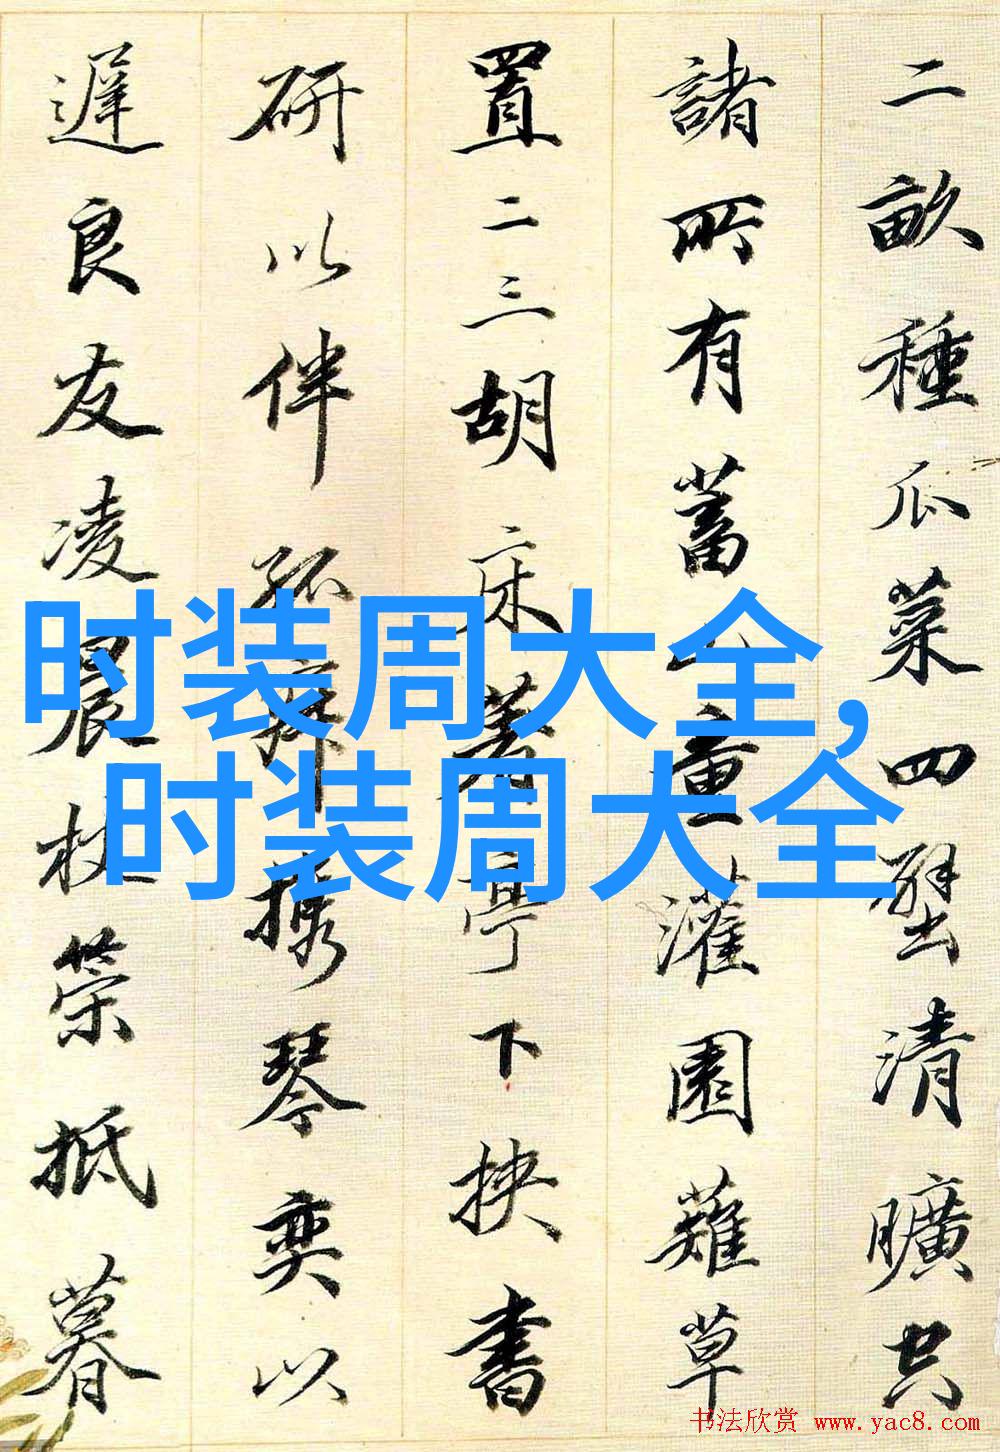 二畝種瓜菜四壁清曠共
諸所有蓄山童灌園薙草
置二三胡床著亭下挾書
研以伴孤寂携琴奕以
遲良友凌晨杖策抵暮
时装周大全,
时装周大全
书法欣赏 www.yac8.com